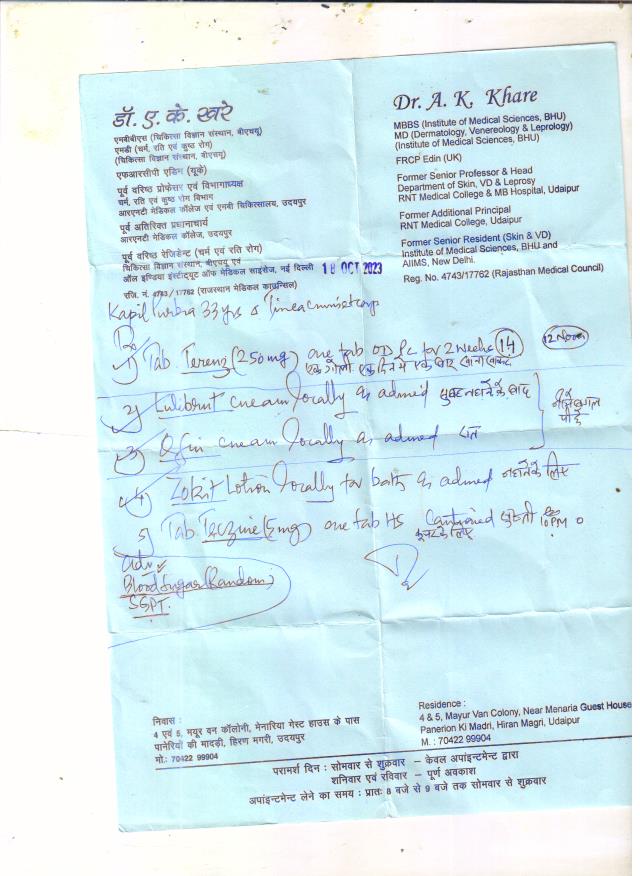 डॉ. ए. के. खरे
एमबीबीएस (चिकित्सा विज्ञान संस्थान, बीएचयू)
एमडी (चर्म, रति एवं कुष्ठ रोग)
(चिकित्सा विज्ञान संस्थान, बीएचयू)
एफआरसीपी एडिन (यूके)
पूर्व वरिष्ठ प्रोफेसर एवं विभागाध्यक्ष
चर्म, रति एवं कुष्ठ रोग विभाग
आरएनटी मेडिकल कॉलेज एवं एमबी चिकित्सालय, उदयपुर
पूर्व अतिरिक्त प्रधानाचार्य
आरएनटी मेडिकल कॉलेज, उदयपुर
पूर्व वरिष्ठ रेजिडेन्ट (चर्म एवं रति रोग)
चिकित्सा विज्ञान संस्थान, बीएचयू एवं
ऑल इण्डिया इंस्टीट्यूट ऑफ मेडिकल साइसेज, नई दिल्ली
रजि. नं. 4743/17762 (राजस्थान मेडिकल काउन्सिल)
Dr. A. K. Khare
MBBS (Institute of Medical Sciences, BHU)
MD (Dermatology, Venereology & Leprology)
(Institute of Medical Sciences, BHU)
FRCP Edin (UK)
Former Senior Professor & Head
Department of Skin, VD & Leprosy
RNT Medical College & MB Hospital, Udaipur
Former Additional Principal
RNT Medical College, Udaipur
Former Senior Resident (Skin & VD)
Institute of Medical Sciences, BHU and
AIIMS, New Delhi.
Reg. No. 4743/17762 (Rajasthan Medical Council)
18 OCT 2023
Kapil 33 yrs
12 Noon
1) Tab (250 mg) one tab OD PC for 2 weeks 14
एक गोली एक दिन में एक बार
2) cream locally as advised सुबह नहाने के बाद
3) cream locally as advised रात
4) Lotion locally for bath as advised नहाने के लिए
5) Tab (5mg) one tab HS 10 PM
Adv
Blood Sugar (Random)
SGPT.
निवास :
4 एवं 5, मयूर वन कॉलोनी, मेनारिया गेस्ट हाउस के पास
पानेरियों की मादड़ी, हिरण मगरी, उदयपुर
मो.: 70422 99904
Residence :
4 & 5, Mayur Van Colony, Near Menaria Guest House
Panerion Ki Madri, Hiran Magri, Udaipur
M. : 70422 99904
परामर्श दिन : सोमवार से शुक्रवार – केवल अपांइन्टमेन्ट द्वारा
शनिवार एवं रविवार – पूर्ण अवकाश
अपांइन्टमेन्ट लेने का समय : प्रातः 8 बजे से 9 बजे तक सोमवार से शुक्रवार